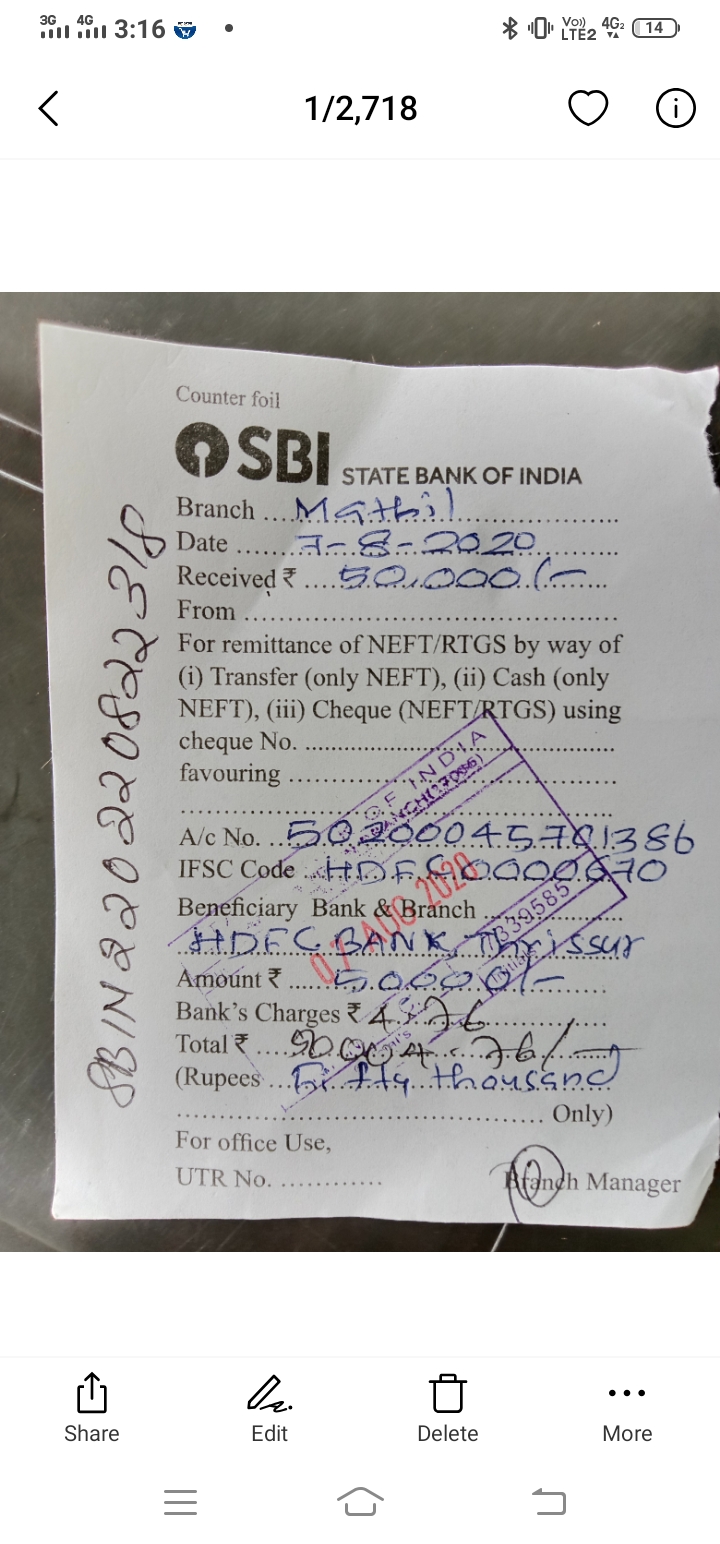 3G 4G 3:16 Vo)) LTE2 4G2 14
1/2,718
Counter foil
SBI STATE BANK OF INDIA
Branch ... Mathil
Date ...... 7-8-2020
Received ₹ .... 50,000/-
From ..........
For remittance of NEFT/RTGS by way of
(i) Transfer (only NEFT), (ii) Cash (only
NEFT), (iii) Cheque (NEFT/RTGS) using
cheque No. ..........
favouring ..........
A/c No. .. 50200045701386
IFSC Code .. HDFC0000670
Beneficiary Bank & Branch ..........
HDFC BANK, Thrissur
Amount ₹ ..... 50000/-
Bank's Charges ₹ 4.76
Total ₹ .... 50004.76/-
(Rupees ... Fifty thousand
.......... Only)
For office Use,
UTR No. ............
Branch Manager
SBIN220220822318
OF INDIA
07 AUG 2020
339585
Share Edit Delete More